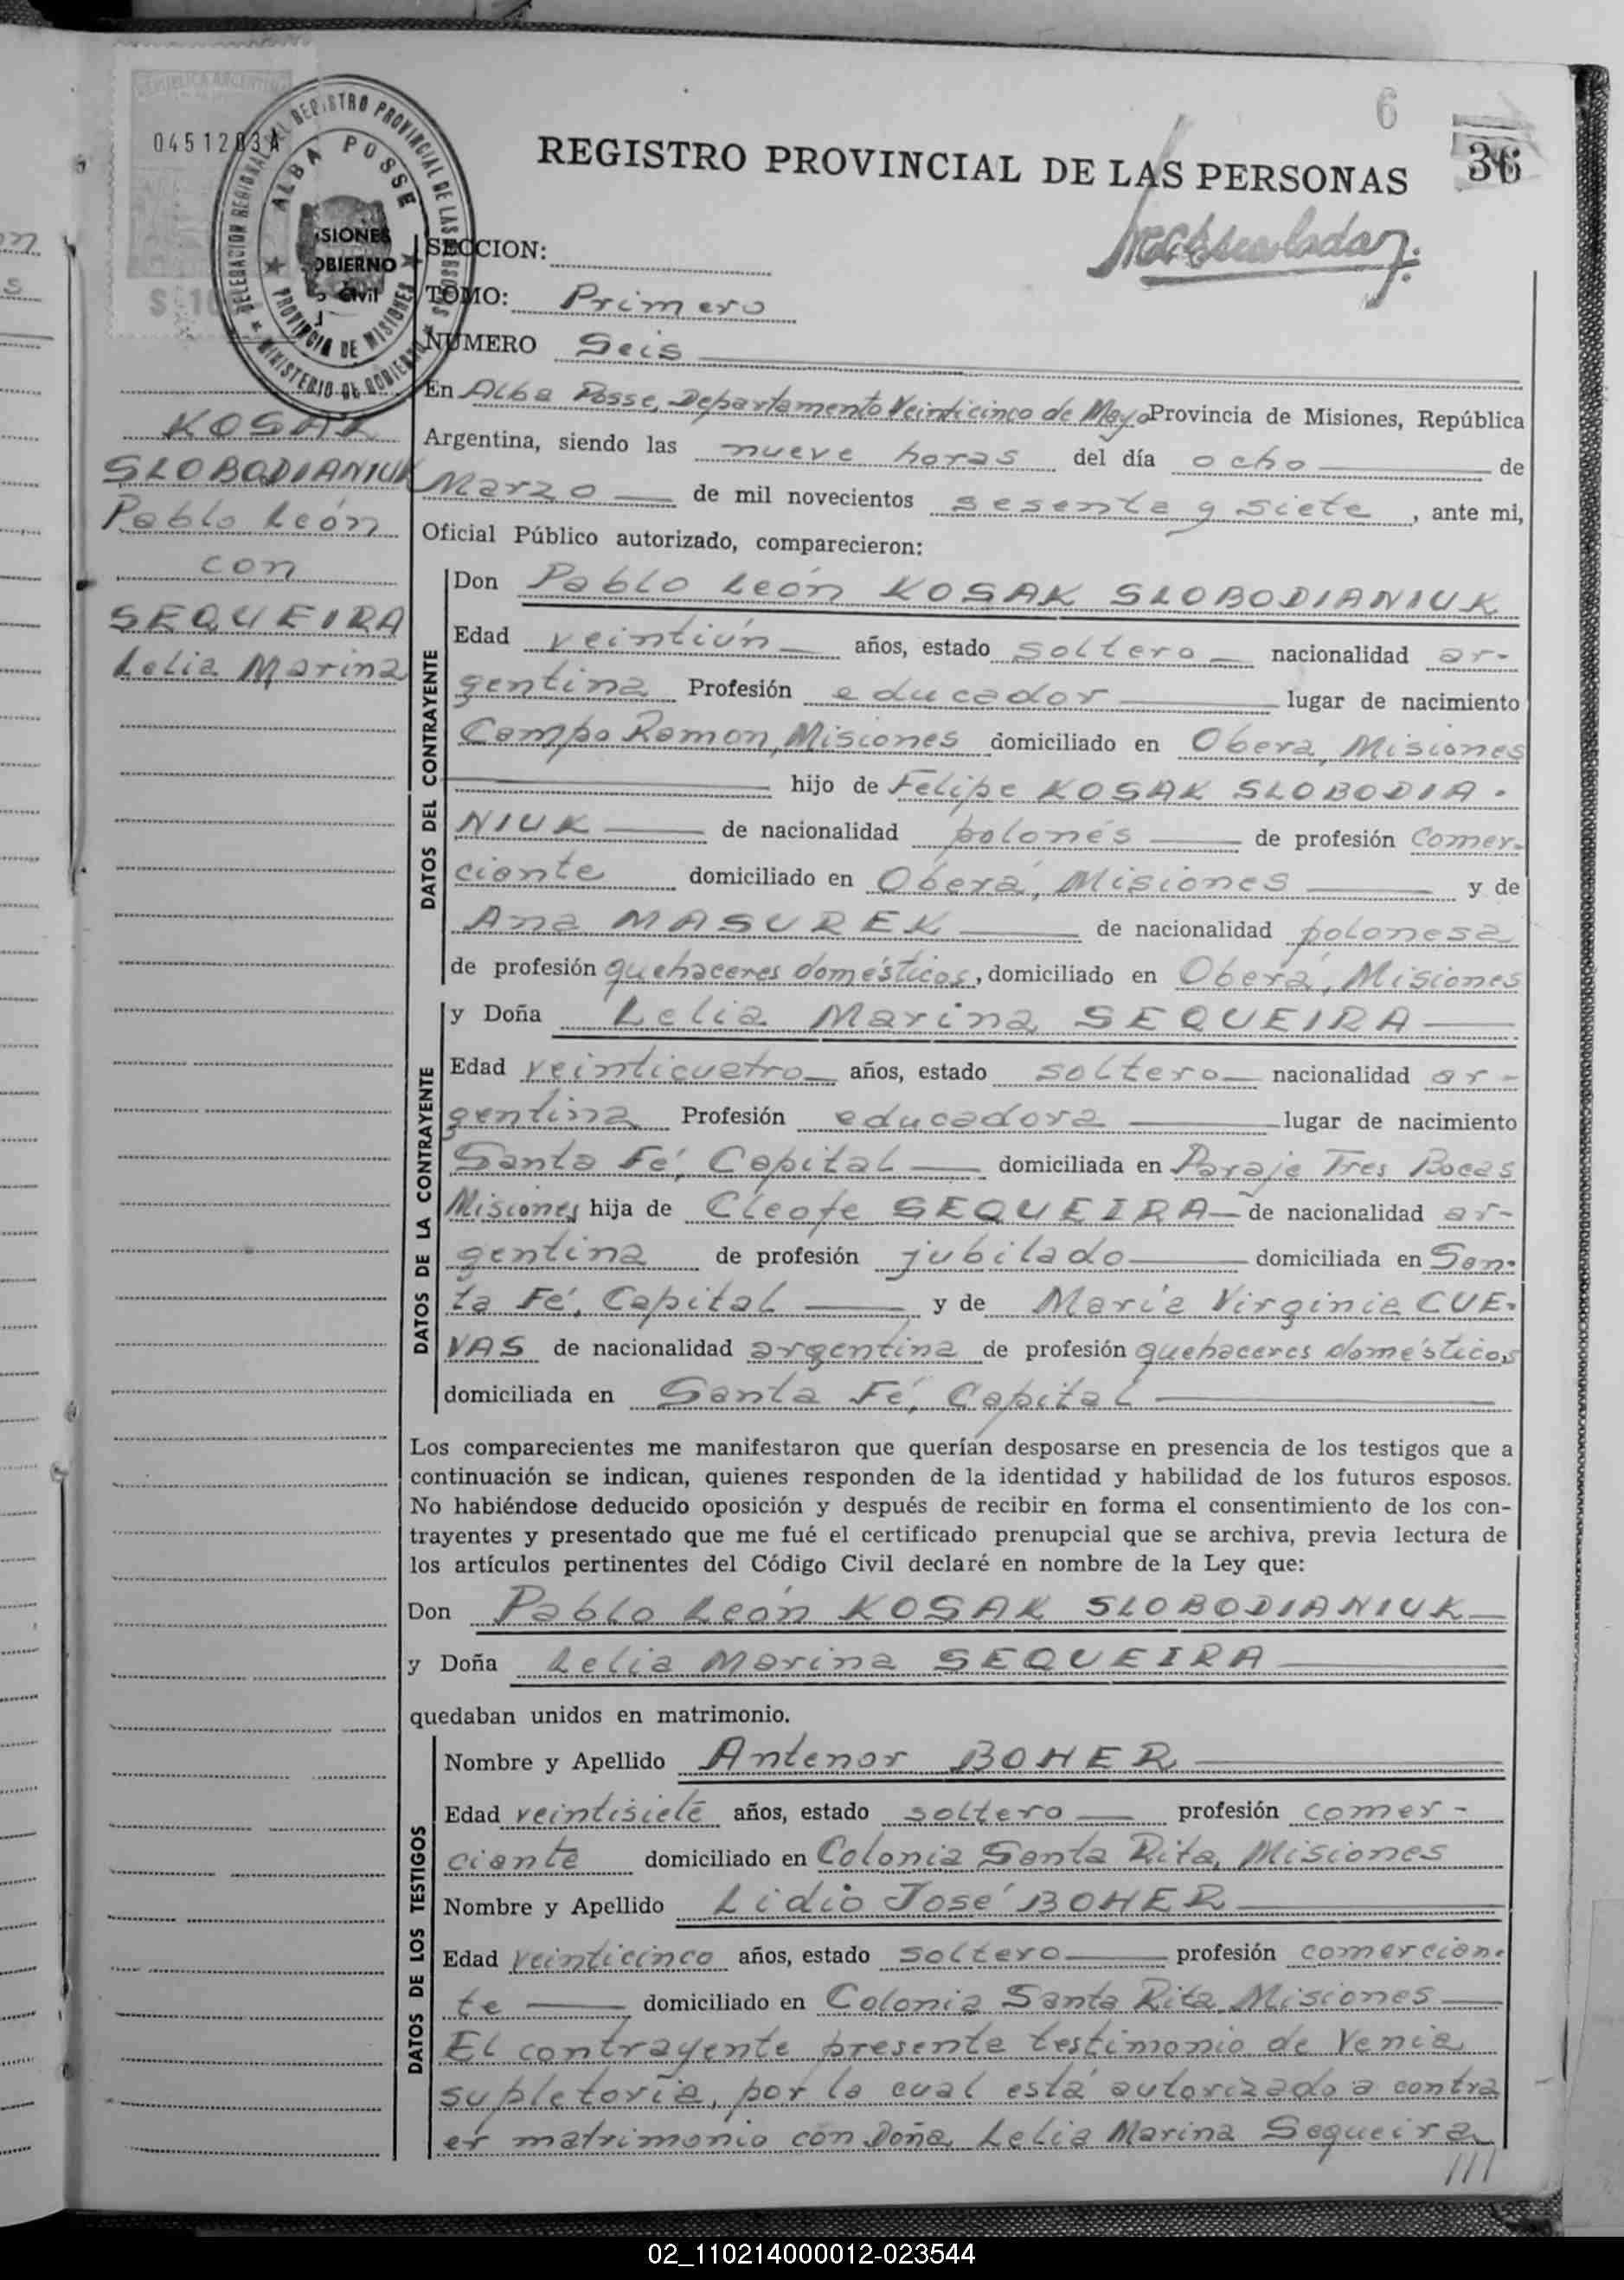 6
36
REGISTRO PROVINCIAL DE LAS PERSONAS
0451203A
ALBA POSSE
PROVINCIA DE MISIONES
SECCION:
TOMO: Primero
NUMERO Seis
En Alba Posse, Departamento Veinticinco de Mayo Provincia de Misiones, República
Argentina, siendo las nueve horas del día ocho de
Marzo de mil novecientos sesenta y siete, ante mi,
Oficial Público autorizado, comparecieron:
KOSAK
SLOBODIANIUK
Pablo León
con
SEQUEIRA
Lelia Marina
DATOS DEL CONTRAYENTE
Don Pablo León KOSAK SLOBODIANIUK
Edad veintiún años, estado soltero nacionalidad ar-
gentina Profesión educador lugar de nacimiento
Campo Ramon, Misiones domiciliado en Obera, Misiones
hijo de Felipe KOSAK SLOBODIA-
NIUK de nacionalidad polonés de profesión Comer-
ciante domiciliado en Oberá, Misiones y de
Ana MASUREK de nacionalidad polonesa
de profesión quehaceres domésticos, domiciliado en Oberá, Misiones
DATOS DE LA CONTRAYENTE
y Doña Lelia Marina SEQUEIRA
Edad veinticuatro años, estado soltero nacionalidad ar-
gentina Profesión educadora lugar de nacimiento
Santa Fé, Capital domiciliada en Paraje Tres Bocas
Misiones hija de Cleofe SEQUEIRA de nacionalidad ar-
gentina de profesión jubilado domiciliada en San-
ta Fé, Capital y de María Virginia CUE-
VAS de nacionalidad argentina de profesión quehaceres domésticos
domiciliada en Santa Fé, Capital
Los comparecientes me manifestaron que querían desposarse en presencia de los testigos que a
continuación se indican, quienes responden de la identidad y habilidad de los futuros esposos.
No habiéndose deducido oposición y después de recibir en forma el consentimiento de los con-
trayentes y presentado que me fué el certificado prenupcial que se archiva, previa lectura de
los artículos pertinentes del Código Civil declaré en nombre de la Ley que:
Don Pablo León KOSAK SLOBODIANIUK
y Doña Lelia Marina SEQUEIRA
quedaban unidos en matrimonio.
DATOS DE LOS TESTIGOS
Nombre y Apellido Antenor BOHER
Edad veintisiete años, estado soltero profesión comer-
ciante domiciliado en Colonia Santa Rita, Misiones
Nombre y Apellido Lidio José BOHER
Edad veinticinco años, estado soltero profesión comercian-
te domiciliado en Colonia Santa Rita Misiones
El contrayente presenta testimonio de Venia
supletoria, por la cual está autorizado a contra
er matrimonio con Doña Lelia Marina Sequeira
///
02_110214000012-023544